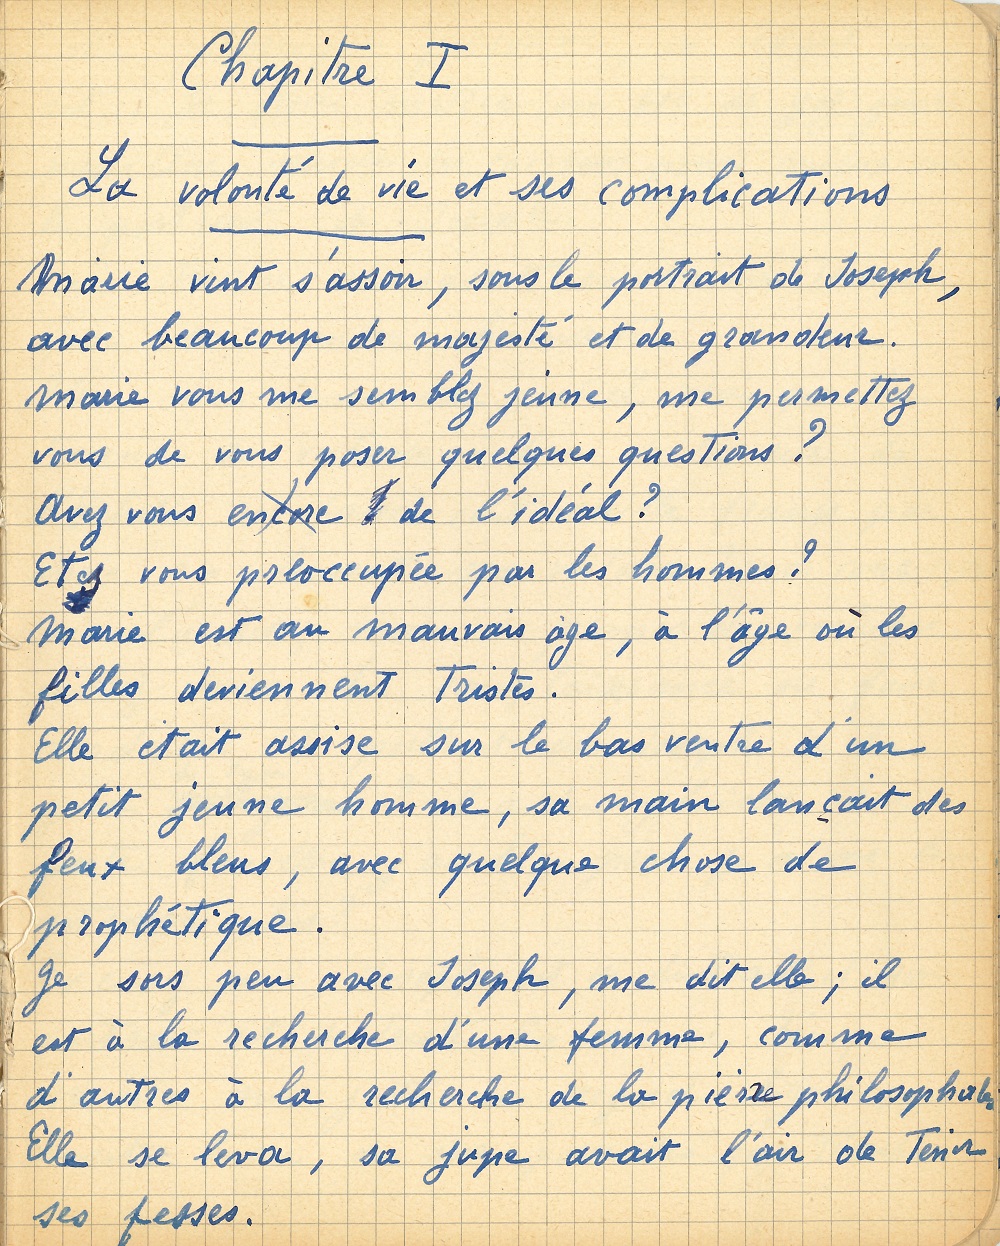 Chapitre I
La volonté de vie et ses complications
Marie vint s'assoir, sous le portrait de Joseph,
avec beaucoup de majesté et de grandeur.
Marie vous me semblez jeune, me permettez
vous de vous poser quelques questions ?
Avez vous encore de l'idéal ?
Etes vous préoccupée par les hommes ?
Marie est au mauvais âge, à l'âge où les
filles deviennent tristes.
Elle était assise sur le bas ventre d'un
petit jeune homme, sa main lançait des
feux bleus, avec quelque chose de
prophétique.
Je sors peu avec Joseph, me dit elle ; il
est à la recherche d'une femme, comme
d'autres à la recherche de la pierre philosophale
Elle se leva, sa jupe avait l'air de tenir
ses fesses.